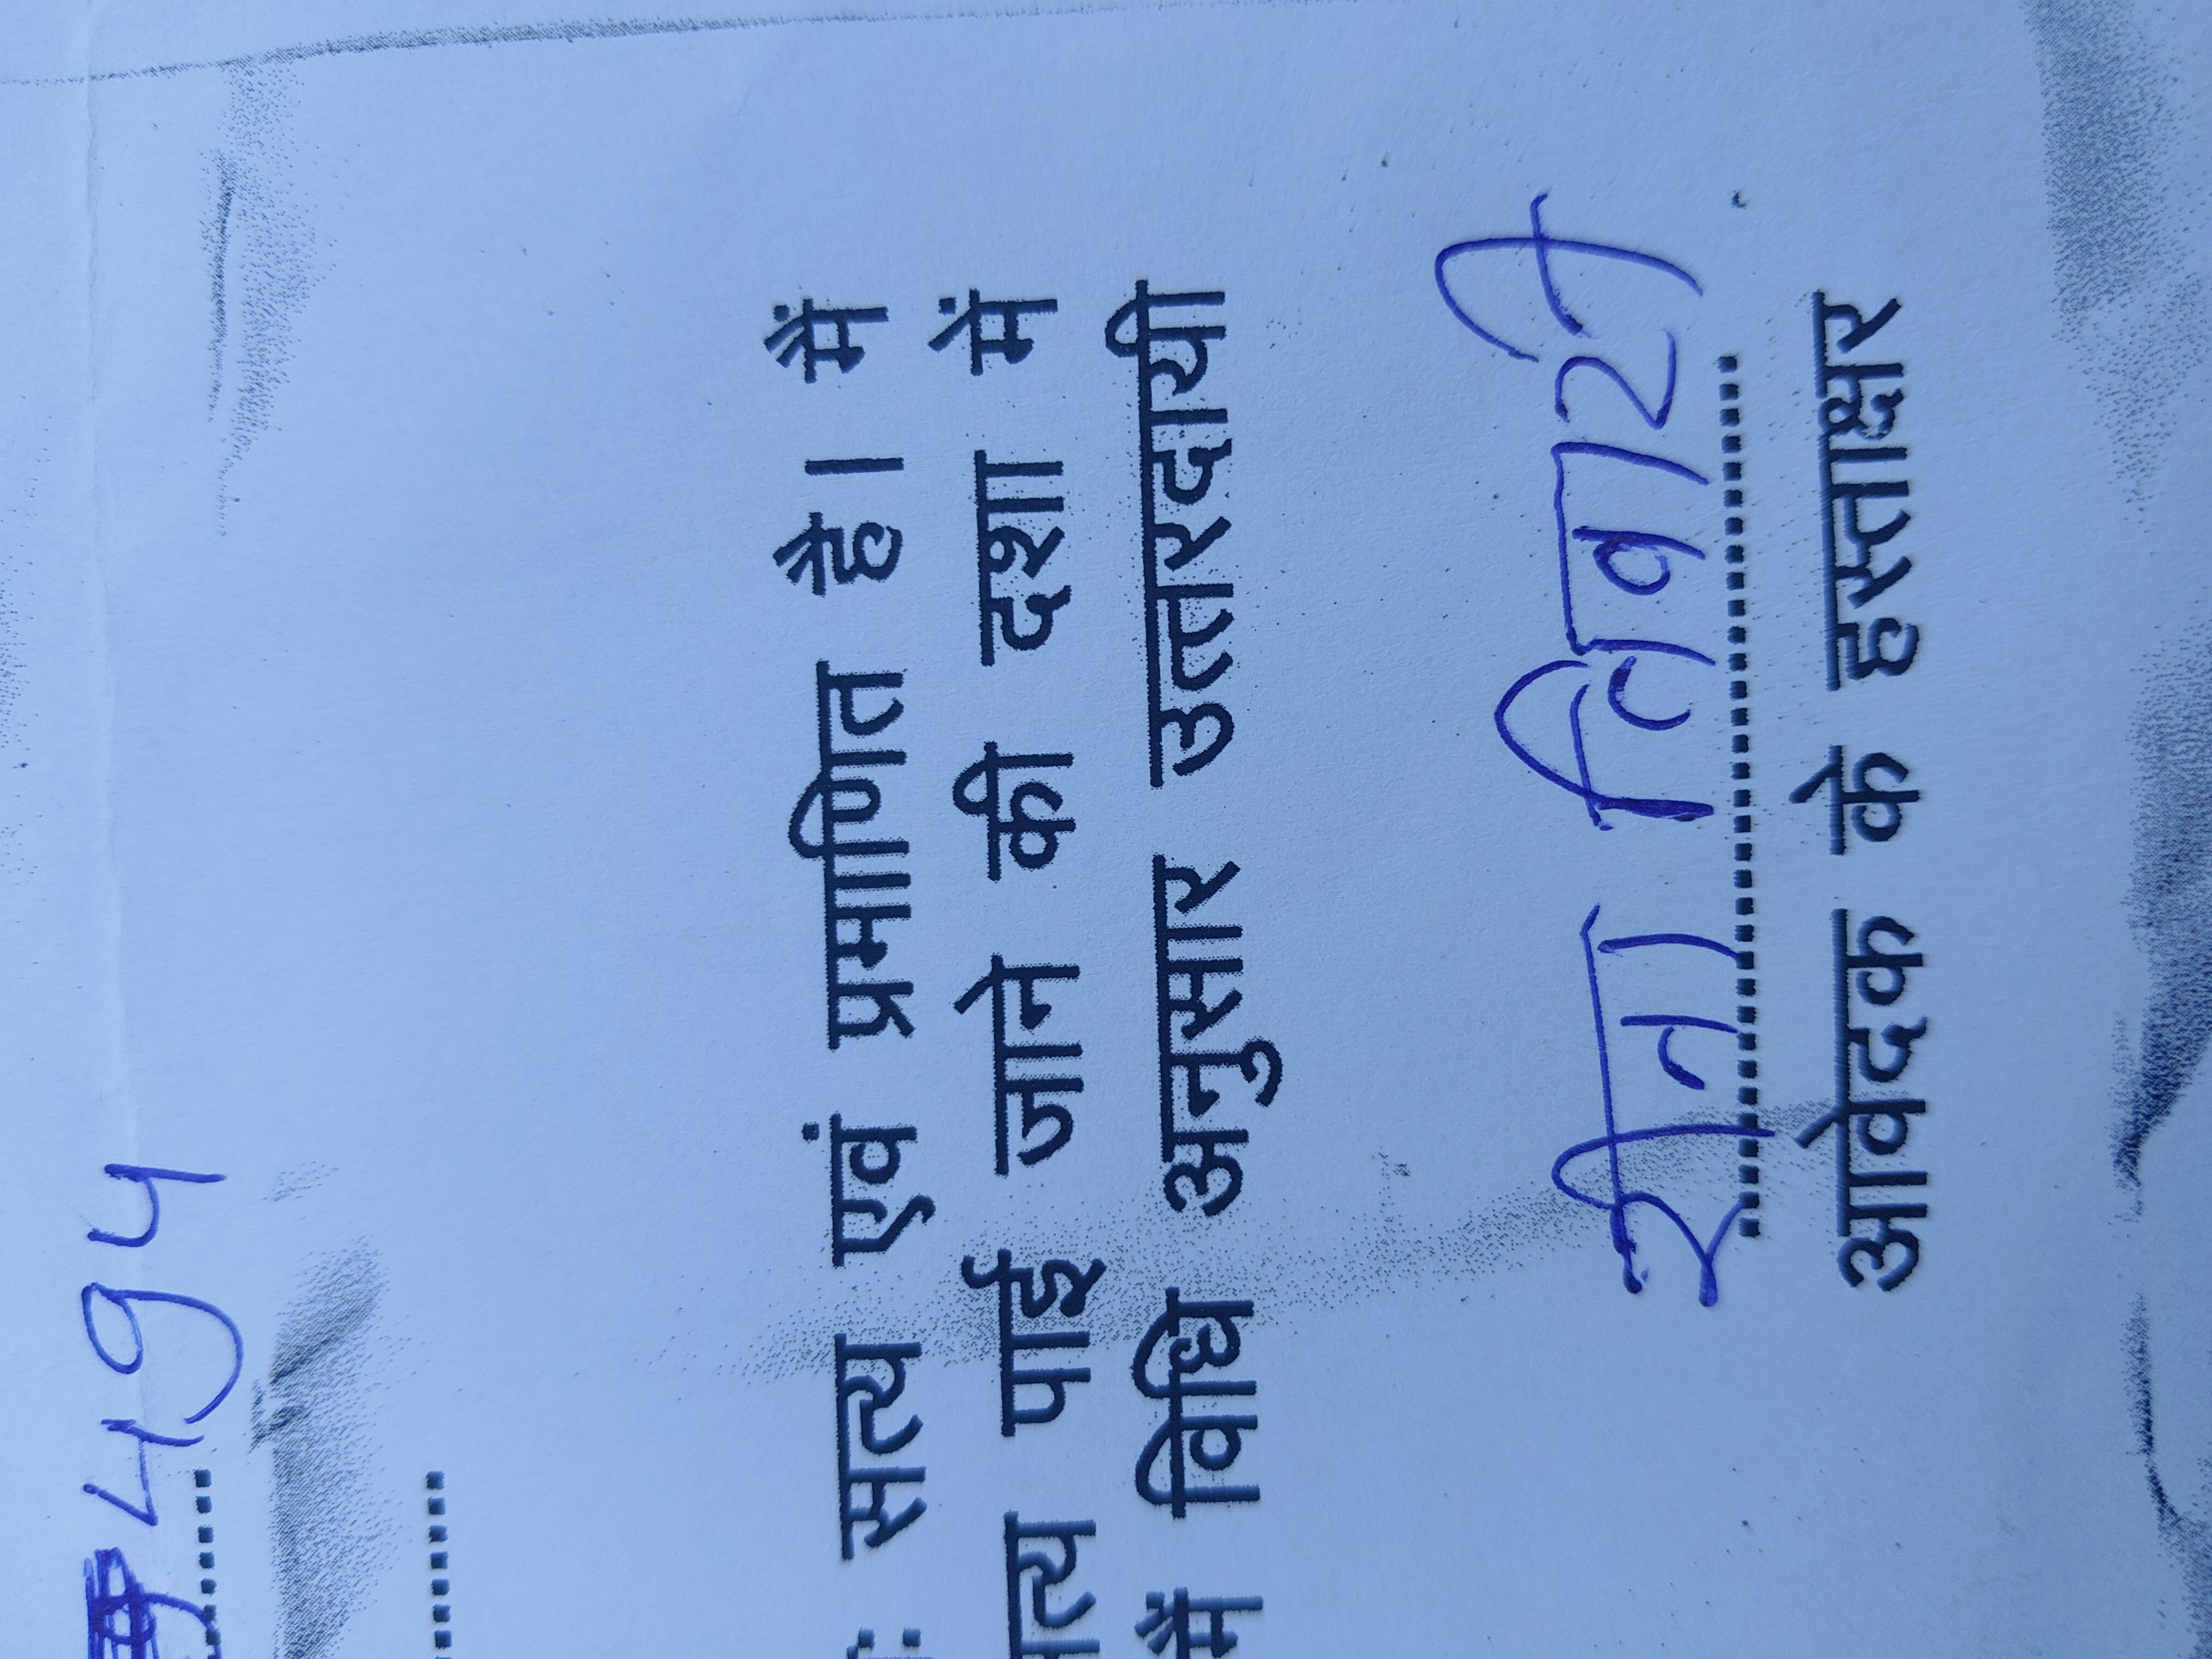 494
ः सत्य एवं प्रमाणित है। मैं
पाई जाने की दशा में
में विधि अनुसार उत्तरदायी
रीता तिवारी
आवेदक के हस्ताक्षर